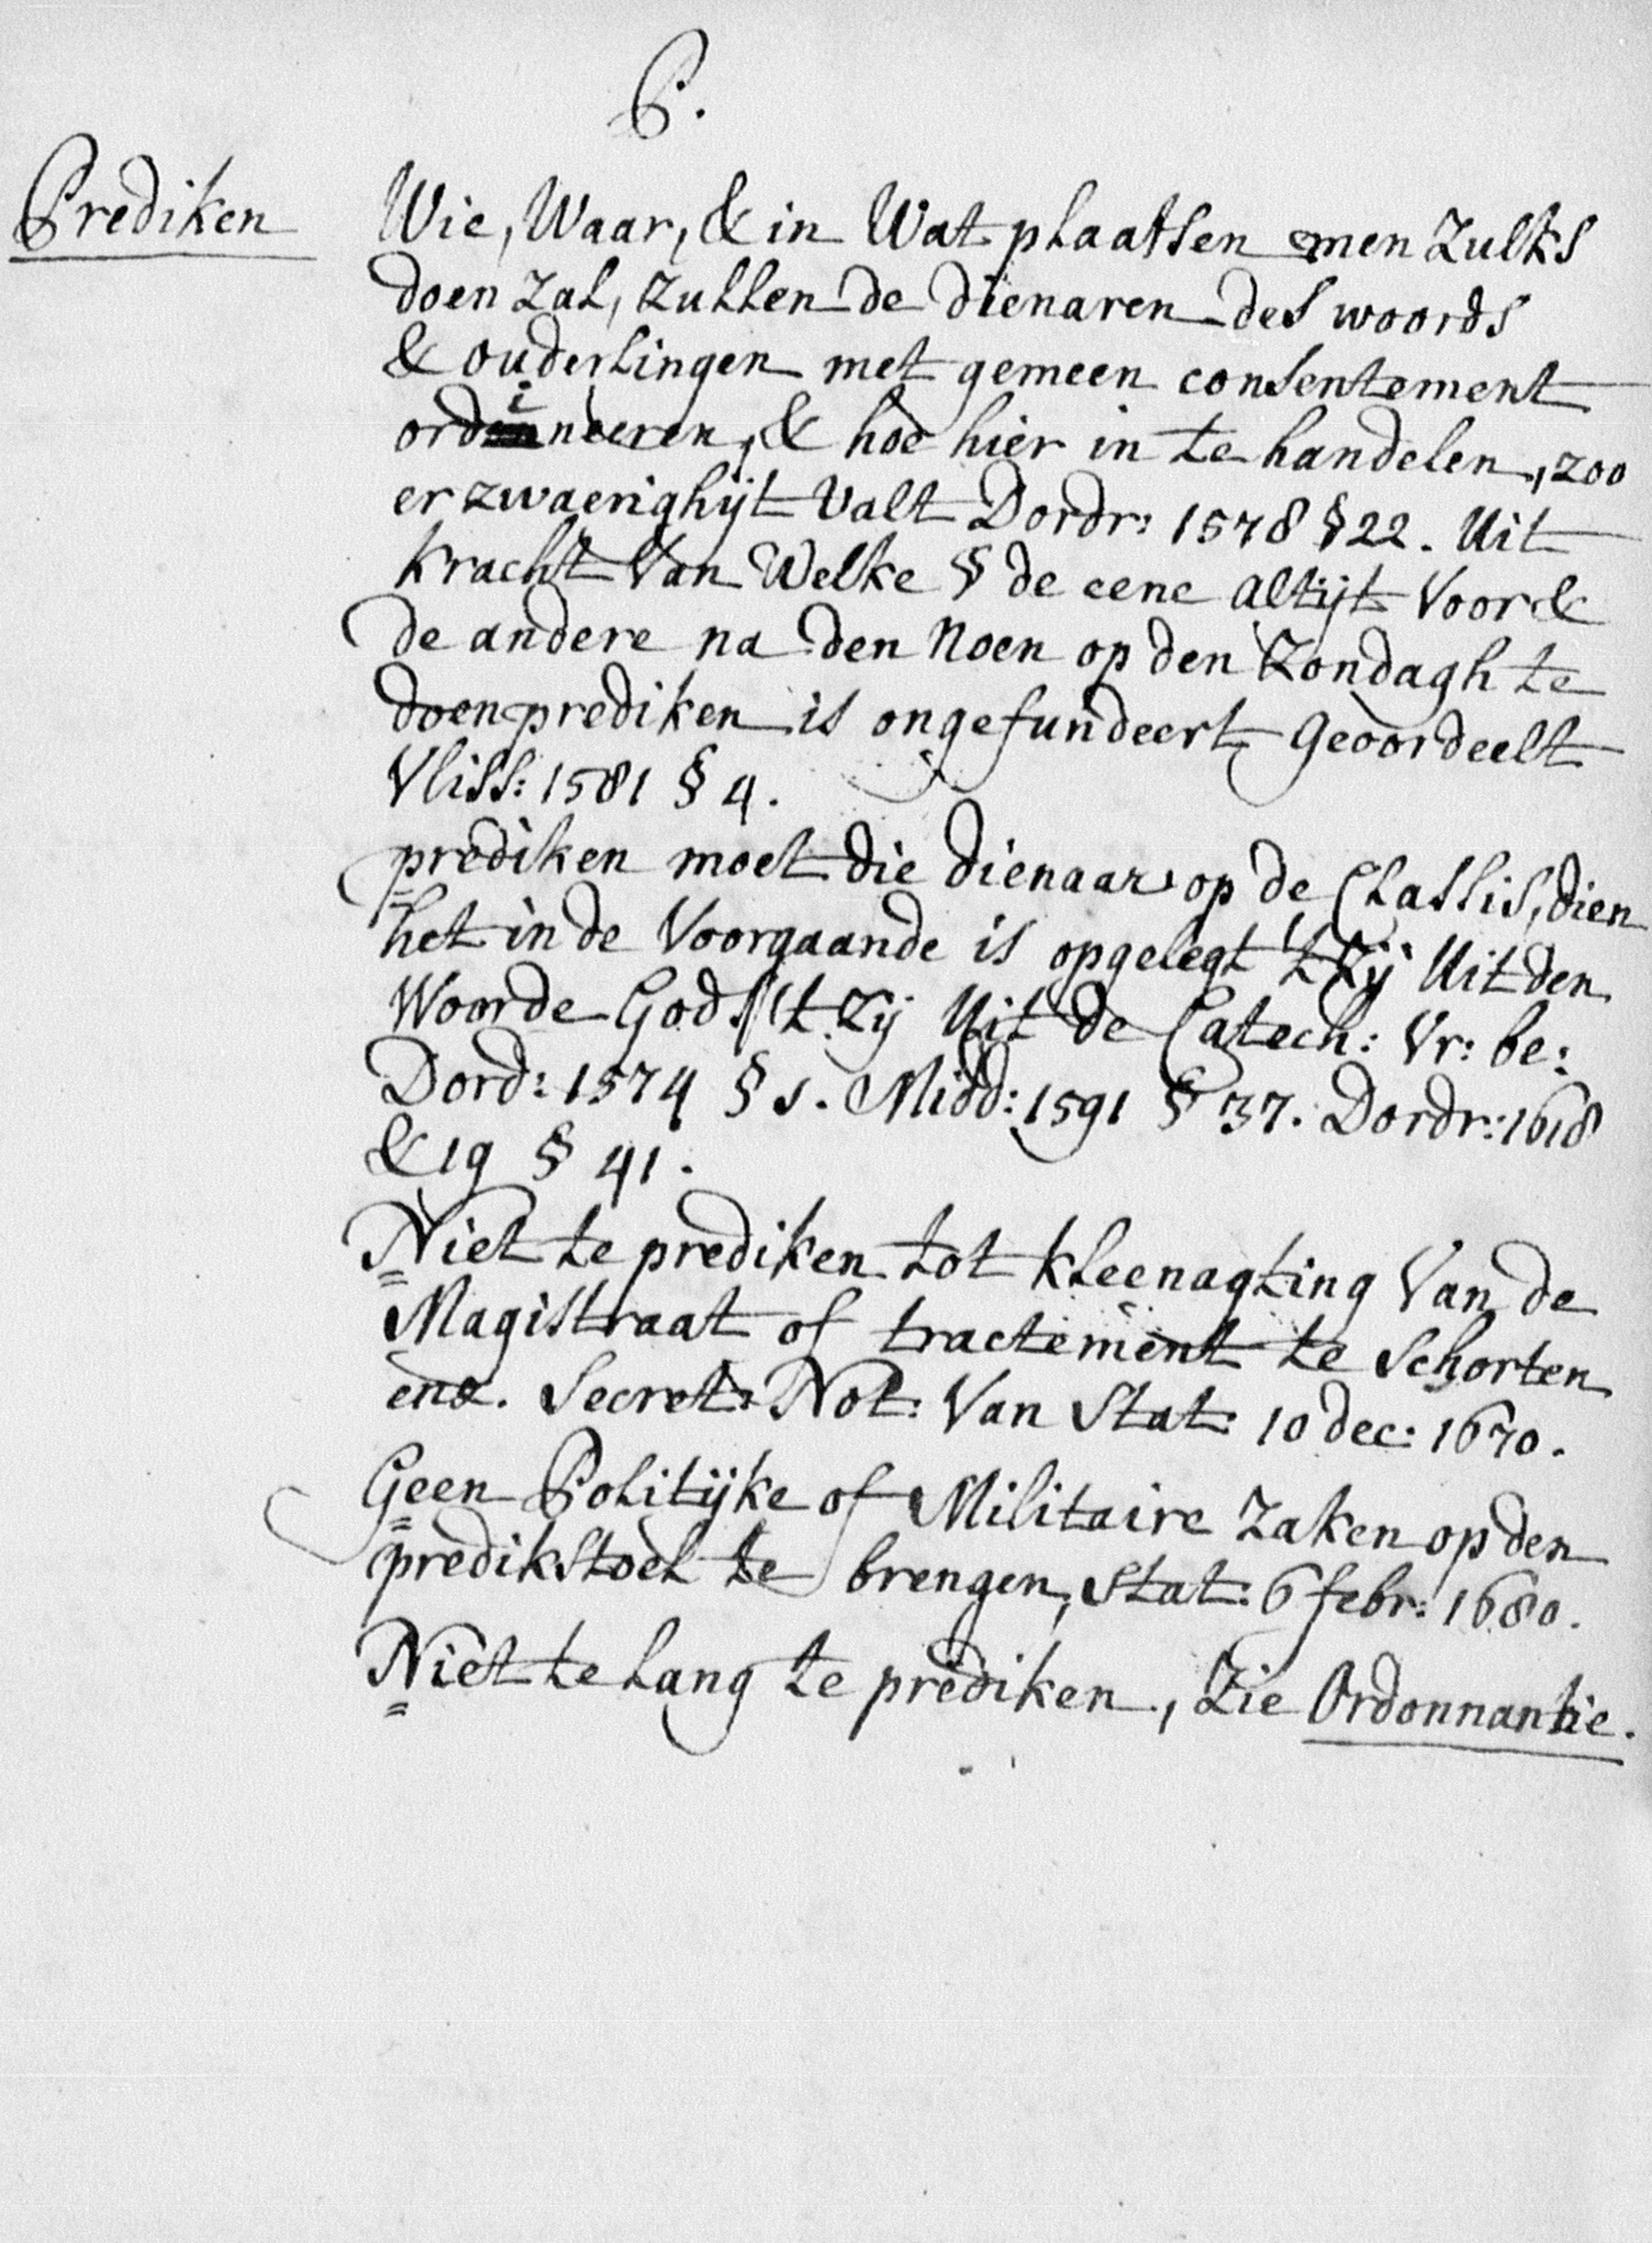 P.
Prediken
Wie, Waar, & in Wat plaatsen men Zulks
doen Zal, Zullen de dienaren des woords
& ouderlingen met gemeen consentement
ordineeren, & hoe hier in te handelen, zoo
er zwaerighijt Valt Dordr: 1578 § 22. Uit
kracht Van Welke § de eene altijt Voor &
de andere na den Noen op den Zondagh te
doen prediken is ongefundeert Geoordeelt
Vliss: 1581 § 4.
prediken moet die dienaar op de Classis, dien
het in de Voorgaande is opgelegt 't Zij Uit den
Woorde Gods 't Zij Uit de Catech: Vr: be:
Dord: 1574 § 1. Midd: 1591 § 37. Dordr: 1618
& 19 § 41.
Niet te prediken tot kleenagting Van de
Magistraat of tractement te Schorten
enz. Secret: Not: Van Stat: 10 dec: 1670.
Geen Politijke of Militaire Zaken op den
predikstoel te brengen, Stat: 6 febr: 1680.
Niet te lang te prediken, Zie Ordonnantie.